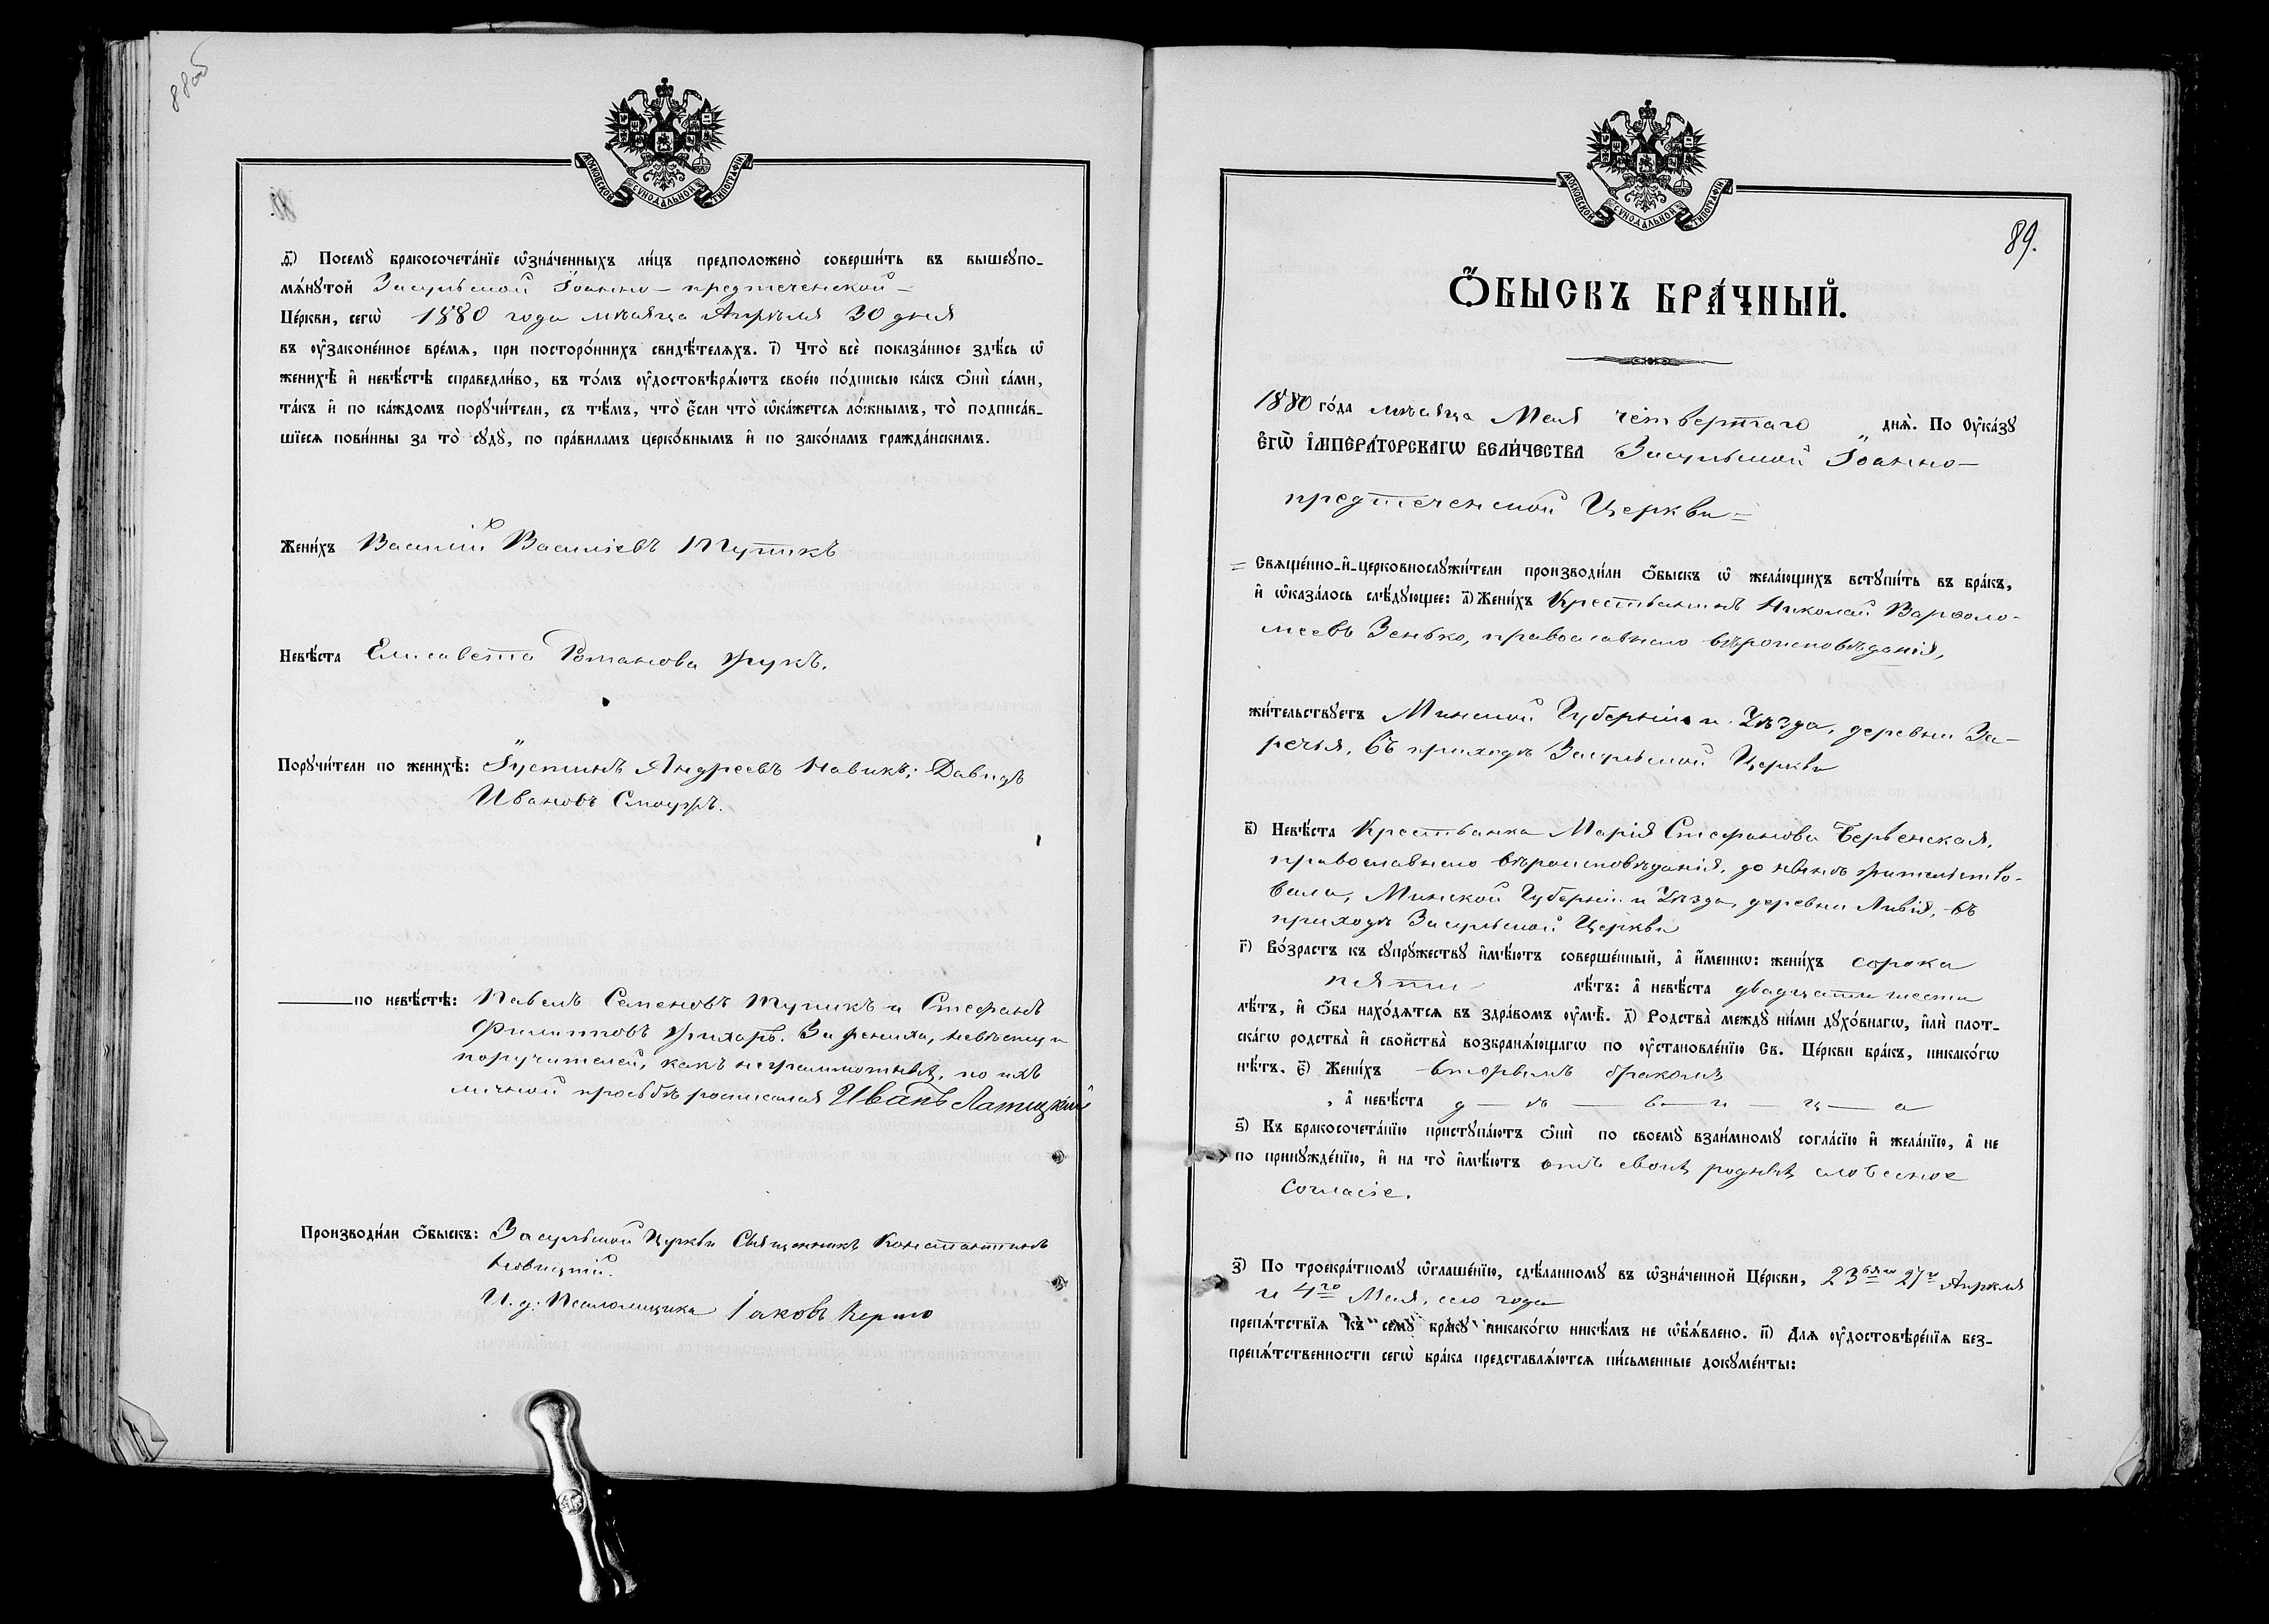 88об
МОСКОВСКОЙ СѴНОДАЛЬНОЙ ТИПОГРАФІИ
Посемꙋ̀ бракосочета́нїе ѡ҆зна́ченныхъ ли́цъ предположено̀ соверши́ть въ вышеꙋпо-
мѧ́нꙋтой Засульской Іоанно-предтеченской-
Це́ркви, сегѡ̀ 1880 года мѣсяца Апрѣля 30 дня
въ ᲂу҆законе́нное вре́мѧ, при посторо́ннихъ свидѣ́телѧхъ. і҃) Что̀ всѐ пока́занное здѣ́сь ѡ҆
женихѣ̀ и҆ невѣ́стѣ справедли́во, въ то́мъ ᲂу҆достовѣрѧ́ютъ свое́ю по́дписью ка́къ ѻ҆нѝ са́ми,
та́къ и҆ по ка́ждомъ порꙋчи́тели, съ тѣ́мъ, что̀ є҆́сли что̀ ѡ҆ка́жетсѧ ло́жнымъ, то̀ подписа́в-
шїесѧ пови́нны за то̀ сꙋдꙋ̀, по пра́виламъ церко́внымъ и҆ по зако́намъ гражда́нскимъ.
Жени́хъ Василій Василіевъ Тупикъ
Невѣ́ста Елисавета Романова Жукъ.
Порꙋчи́тели по женихѣ̀: Іустинъ Андреевъ Навикъ; Давидъ
Ивановъ
по невѣ́стѣ: Павелъ Семеновъ Тупикъ и Стефанъ
Филиповъ Жихарь. За жениха, невѣсту и
поручителей, какъ неграмотныхъ, по ихъ
личной просьбѣ росписался Иванъ Латицкій
Производи́ли ѻ҆́быскъ: Засульской Церкви Священникъ Константинъ
Новицкій.
И. д. Псаломщика Іаковъ
МОСКОВСКОЙ СѴНОДАЛЬНОЙ ТИПОГРАФІИ
89.
Ѻ҆́БЫСКЪ БРА́ЧНЫЙ.
1880 го́да мѣсяца Мая четвертаго днѧ̀. По ᲂу҆ка́зꙋ
Є҆ГѠ̀ И҆МПЕРА́ТОРСКАГѠ ВЕЛИ́ЧЕСТВА Засульской Іоанно-
предтеченской Церкви=
= Свѧще́нно-и҆-церковнослꙋжи́тели производи́ли ѻ҆́быскъ ѡ҆ жела́ющихъ встꙋпи́ть въ бра́къ,
и҆ ѡ҆каза́лось слѣ́дꙋющее: а҃) Жени́хъ Крестьянинъ Николай Варѳоло-
меевъ Зенько, православнаго вѣроисповѣданія,
жи́тельствꙋетъ Минской Губерніи и Уѣзда, деревни За-
речья, въ приходѣ Засульской Церкви
в҃) Невѣ́ста Крестьянка Марія Стефанова Червенская,
православнаго вѣроисповѣданія, до нынѣ жительство-
вала, Минской Губерніи и Уѣзда, деревни Ливія, въ
приходѣ Засульской Церкви
г҃) Во́зрастъ къ сꙋпрꙋжествꙋ и҆мѣ́ютъ соверше́нный, а҆ и҆́меннѡ: жени́хъ сорока
пяти лѣ́тъ: а҆ невѣ́ста двадцати шести
лѣ́тъ, и҆ ѻ҆́ба нахо́дѧтсѧ въ здра́вомъ ᲂу҆мѣ̀. д҃) Родства̀ междꙋ̀ ни́ми дꙋхо́внагѡ, и҆лѝ плот-
ска́гѡ родства̀ и҆ сво́йства̀ возбранѧ́ющагѡ по ᲂу҆становле́нїю Св. Це́ркви бра́къ, никако́гѡ
нѣ́тъ. є҃) Жени́хъ вторымъ бракомъ
, а҆ невѣ́ста д — ѣ — в — и — ц — а
ѕ҃) Къ бракосочета́нїю пристꙋпа́ютъ ѻ҆нѝ по своемꙋ̀ взаи́мномꙋ согла́сїю и҆ жела́нїю, а҆ не
по принꙋжде́нїю, и҆ на то̀ и҆мѣ́ютъ отъ своихъ родныхъ словесное
согласіе.
з҃) По троекра́тномꙋ ѡ҆глаше́нїю, сдѣ́ланномꙋ въ ѡ҆зна́ченной Це́ркви, 23го 27го Апрѣля
и 4го Мая, сего года
препѧ́тствїѧ къ семꙋ̀ бра́кꙋ никако́гѡ никѣ́мъ не ѡ҆б̾ѧ́влено. и҃) Длѧ ᲂу҆достовѣре́нїѧ без-
препѧ́тственности сегѡ̀ бра́ка представлѧ́ютсѧ пи́сьменные докꙋме́нты: